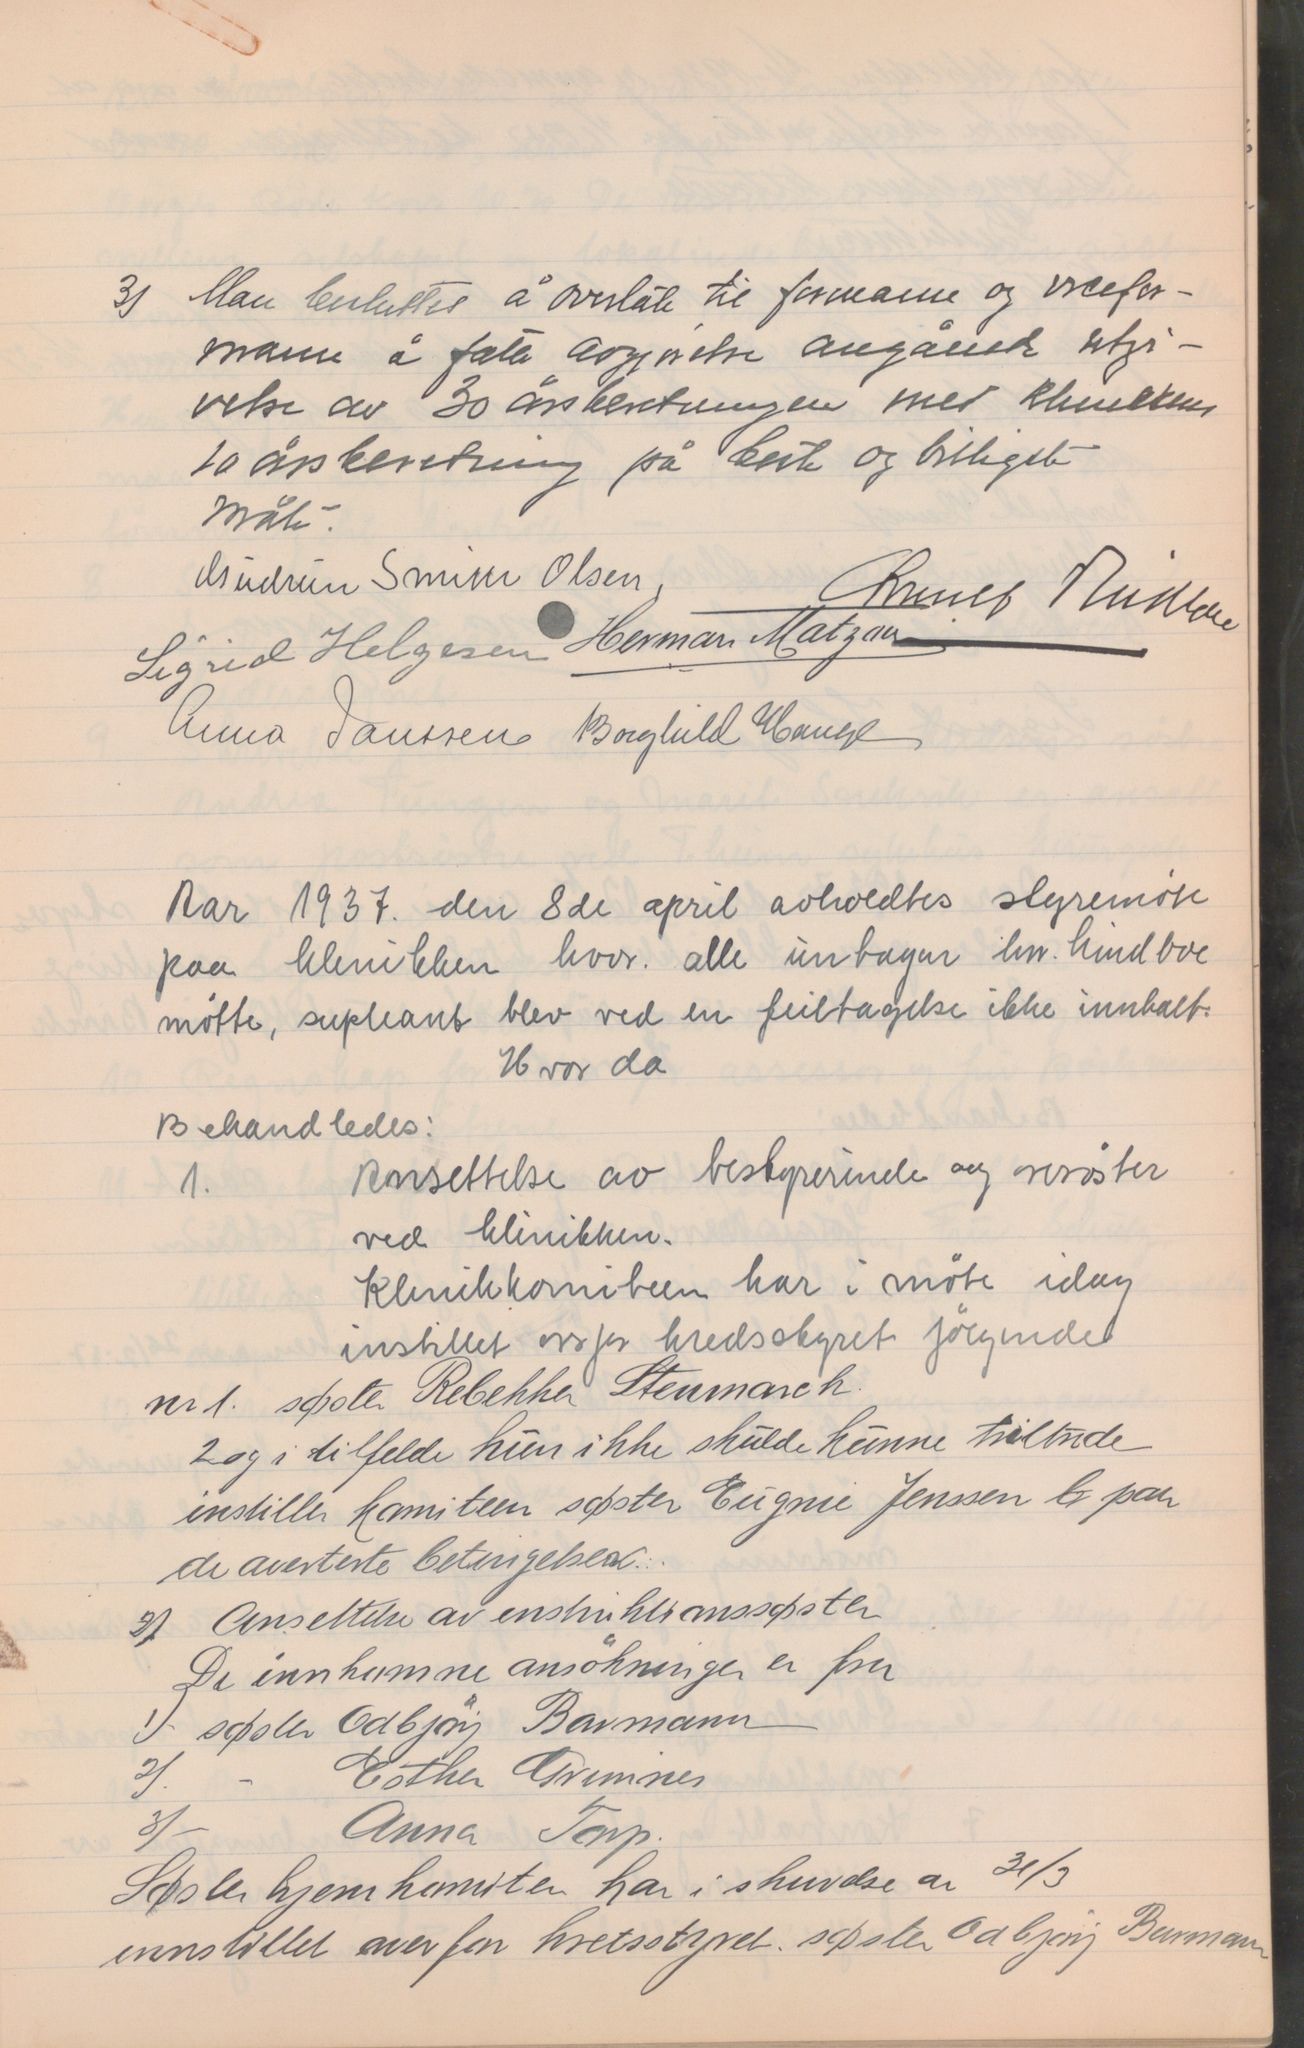 3) Man besluttet å overlate til formann og vicefor-
mann å fatte avgjørelse angående utgi-
velse av 30 årsberetningen med klinikkens
10 årsberetning på beste og billigste
måte.
Gudrun Smith Olsen,
Sigrid Helgesen Herman Matzau
Anna Janssen Borghild Hauge
Aar 1937. den 8de april avholdtes styremöte
paa klinikken hvor. alle untagen hr. Lindboe
mötte, supleant blev ved en feiltagelse ikke innkalt.
Hvor da
Behandledes:
1. Ansettelse av bestyrerinde og oversöster
ved klinikken.
Klinikkomiteen har i möte idag
instillet overfor kredsstyret fölgende
nr 1. søster Rebekka Stenmarck.
2 og i tilfelde hun ikke skulde kunne tiltræde
instiller komiteen søster Eugnie Jenssen paa
de averterte betingelser.
2) Ansettelse av instruktionssøster
De innkomne ansökninger er fra
1)- søster Odbjörg Barmann
2). - Esther Grimnes
3)- Anna Torp.
Søsterhjemkomiten har i skrivelse av 31/3
innstillet overfor kretsstyret. søster Odbjörg Barmann